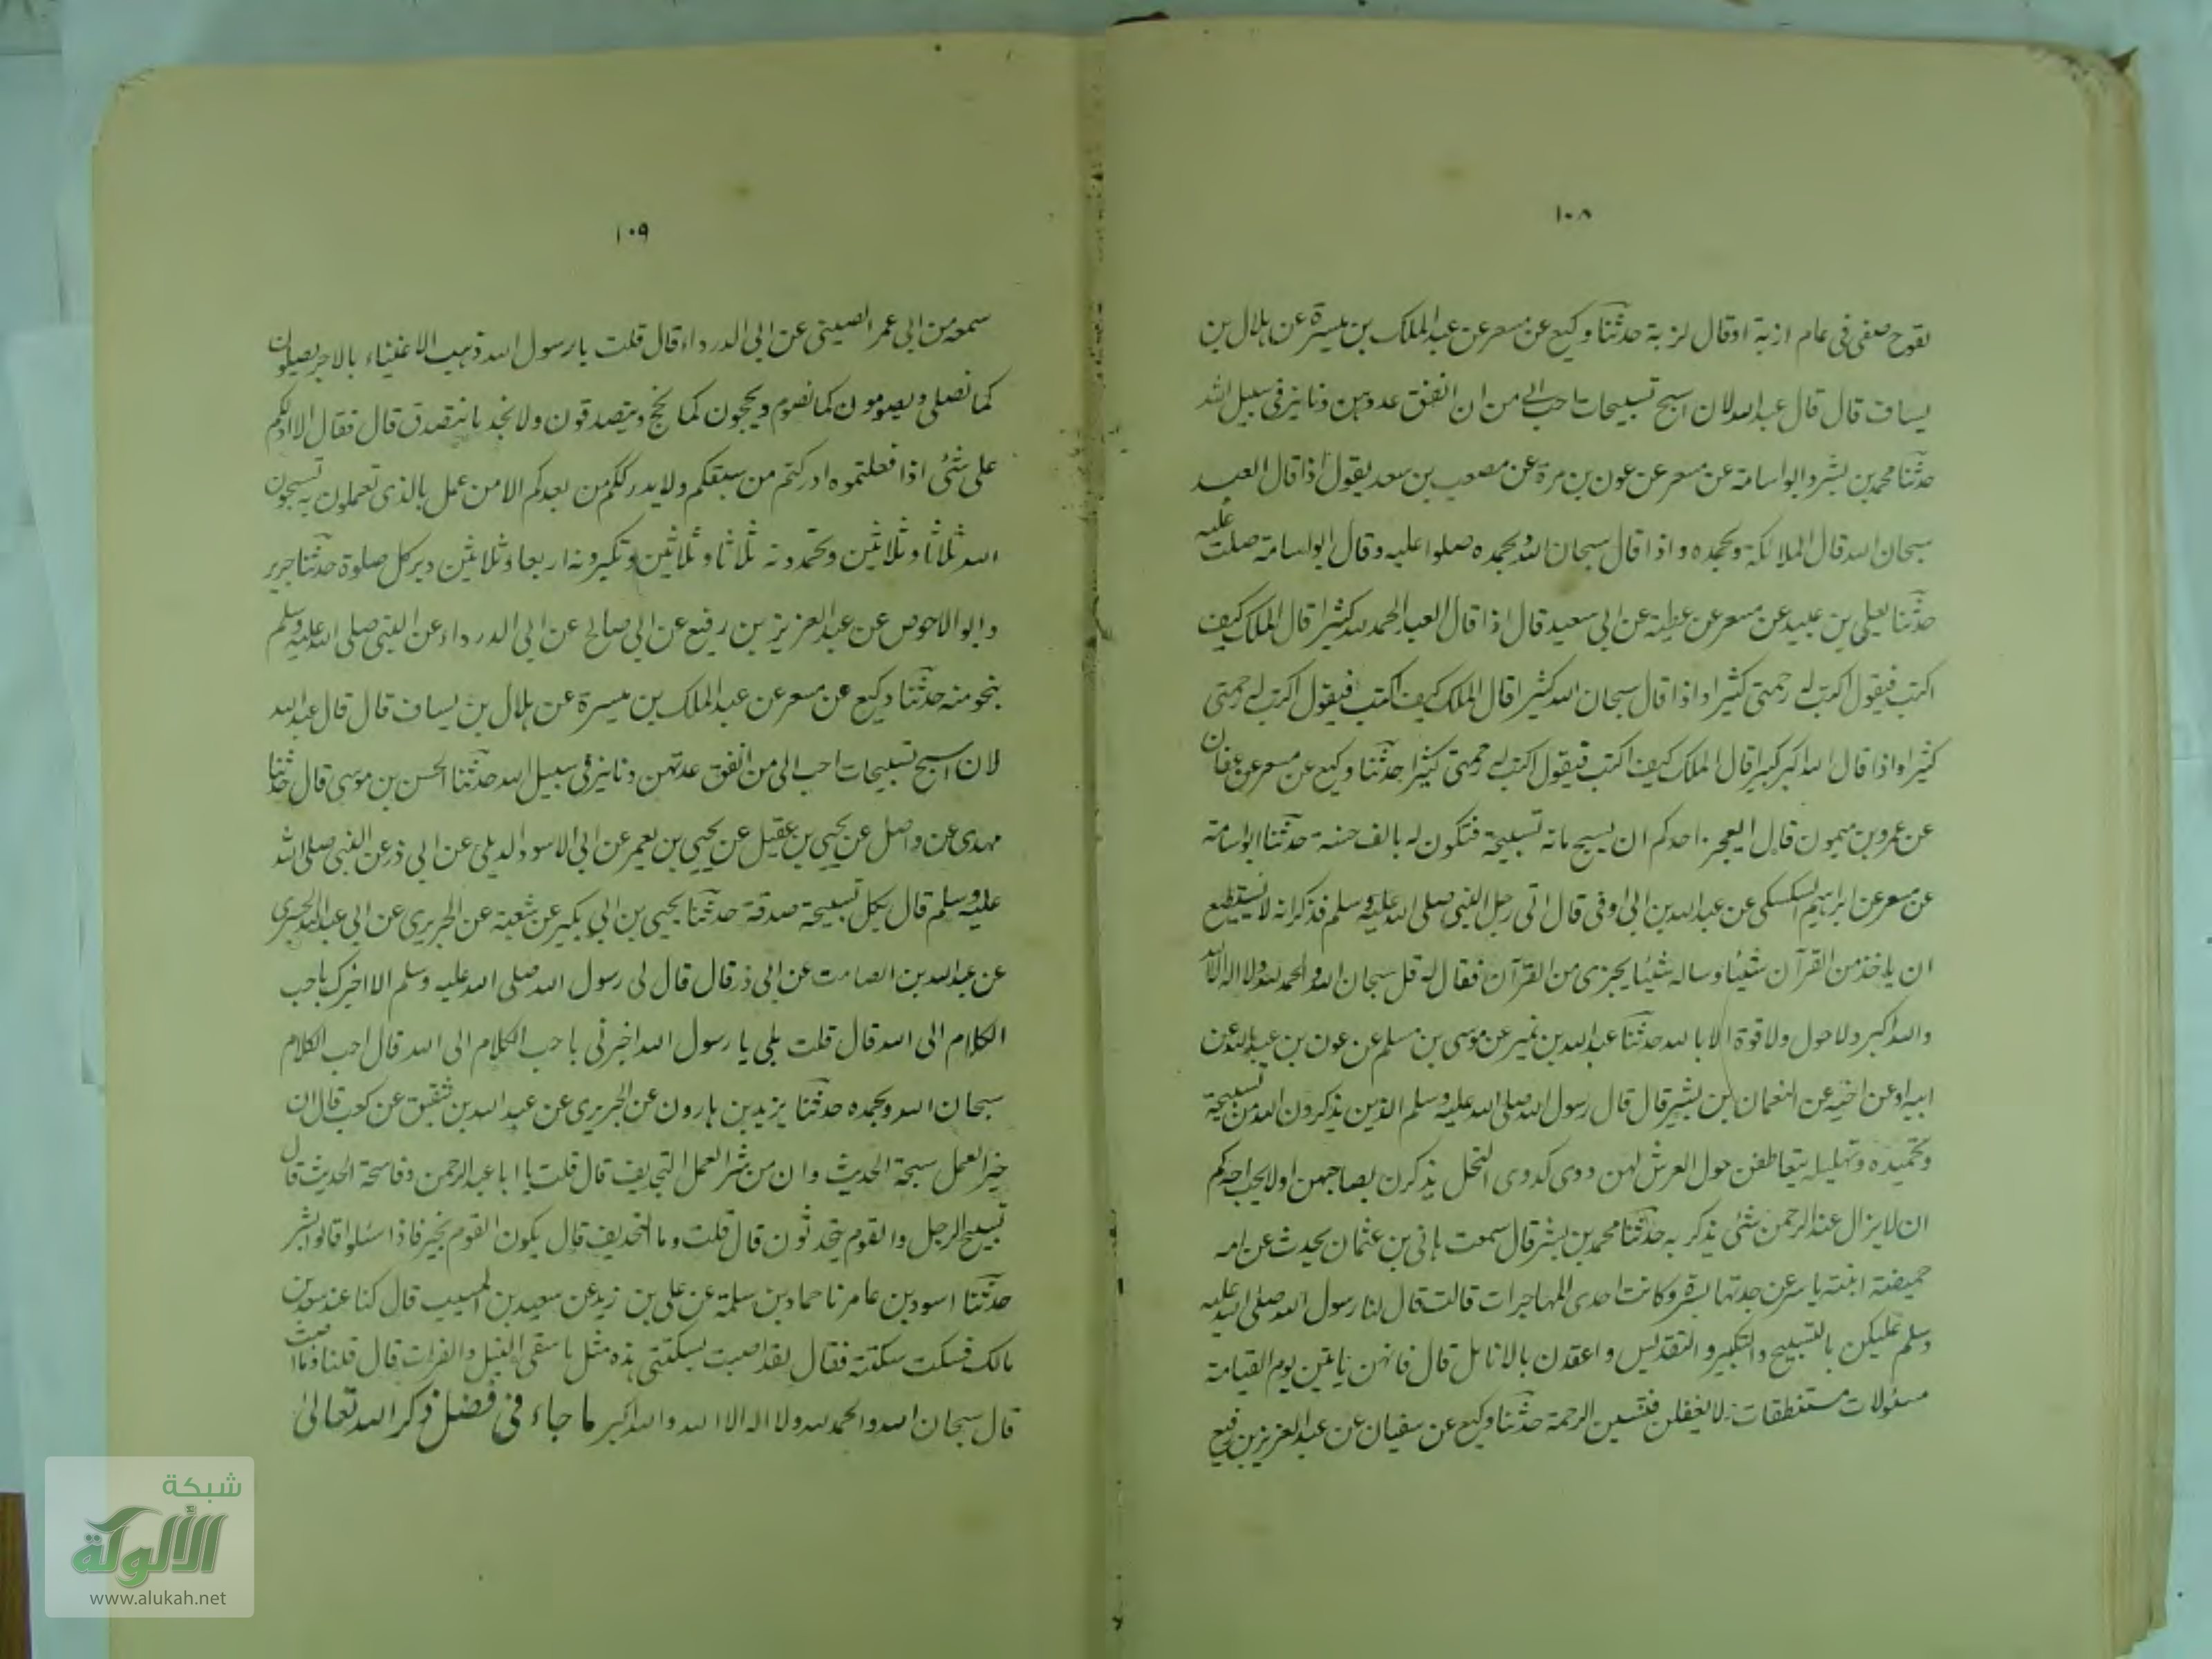 ١٠٨
بقوح صفى فى عام ازبة او قال لزبة حدثنا وكيع عن مسعر عن عبد الملك بن ميسرة عن هلال بن
يساف قال قال عبد الله لان اسبح تسبيحات احب الي من ان انفق عددهن دنانير فى سبيل الله
حدثنا محمد بن بشر وابو اسامة عن مسعر عن عون بن مرة عن مصعب بن سعد يقول اذا قال العبد
سبحان الله قال الملائكة وبحمده واذا قال سبحان الله وبحمده صلوا عليه وقال ابو اسامة صلت عليه
حدثنا يعلى بن عبيد عن مسعر عن عطية عن ابى سعيد قال اذا قال العبد الحمد لله كثيرا قال الملك كيف
اكتب فيقول اكتب له رحمتى كثيرا واذا قال سبحان الله كثيرا قال الملك كيف اكتب فيقول اكتب له رحمتى
كثيرا واذا قال الله اكبر كبيرا قال الملك كيف اكتب فيقول اكتب له رحمتى كثيرا حدثنا وكيع عن مسعر عن عفان
عن عمرو بن ميمون قال ايعجز احدكم ان يسبح مائة تسبيحة فتكون له بالف حسنة حدثنا ابو اسامة
عن مسعر عن ابراهيم السكسكى عن عبد الله بن ابى اوفى قال اتى رجل النبى صلى الله عليه وسلم فذكر انه لا يستطيع
ان ياخذ من القرآن شيئا وساله شيئا يجزى من القرآن فقال له قل سبحان الله والحمد لله ولا اله الا الله
والله اكبر ولا حول ولا قوة الا بالله حدثنا عبد الله بن نمير عن موسى بن مسلم عن عون بن عبد الله عن
ابيه او عن اخيه عن النعمان بن بشير قال قال رسول الله صلى الله عليه وسلم الذين يذكرون الله من تسبيحه
وتحميده وتهليله يتعاطفن حول العرش لهن دوى كدوى النحل يذكرن بصاحبهن اولا يحب احدكم
ان لا يزال عند الرحمن شئ يذكر به حدثنا محمد بن بشر قال سمعت هانى بن عثمان يحدث عن امه
حميضة ابنة ياسر عن جدتها يسرة وكانت احدى المهاجرات قالت قال لنا رسول الله صلى الله عليه
وسلم عليكن بالتسبيح والتكبير والتقديس واعقدن بالانامل قال فانهن ياتين يوم القيامة
مسئولات مستنطقات لا تغفلن فتنسين الرحمة حدثنا وكيع عن سفيان عن عبد العزيز بن رفيع
١٠٩
سمعه من ابى عمر الصينى عن ابى الدرداء قال قلت يا رسول الله ذهب الاغنياء بالاجر يصلون
كما نصلى ويصومون كما نصوم ويحجون كما نحج ويتصدقون ولا نجد ما نتصدق قال فقال الا ادلكم
على شئ اذا فعلتموه ادركتم من سبقكم ولا يدرككم من بعدكم الا من عمل بالذى تعملون به تسبحون
الله ثلاثا وثلاثين وتحمدونه ثلاثا وثلاثين وتكبرونه اربعا وثلاثين دبر كل صلوة حدثنا جرير
وابو الاحوص عن عبد العزيز بن رفيع عن ابى صالح عن ابى الدرداء عن النبى صلى الله عليه وسلم
بنحو منه حدثنا وكيع عن مسعر عن عبد الملك بن ميسرة عن هلال بن يساف قال قال عبد الله
لان اسبح تسبيحات احب الى من انفق عدتهن دنانير فى سبيل الله حدثنا الحسن بن موسى قال حدثنا
مهدى عن واصل عن يحيى بن عقيل عن يحيى بن يعمر عن ابى الاسود الديلى عن ابى ذر عن النبى صلى الله
عليه وسلم قال بكل تسبيحة صدقة حدثنا يحيى بن ابى بكير عن شعبة عن الجريرى عن ابى عبد الله الجسرى
عن عبد الله بن الصامت عن ابى ذر قال قال لى رسول الله صلى الله عليه وسلم الا اخبرك باحب
الكلام الى الله قال قلت بلى يا رسول الله اخبرنى باحب الكلام الى الله قال احب الكلام
سبحان الله وبحمده حدثنا يزيد بن هارون عن الجريرى عن عبد الله بن شقيق عن كعب قال ان
خير العمل سبحة الحديث وان من شر العمل التجديف قال قلت يا ابا عبد الرحمن وما سبحة الحديث قال
تسبيح الرجل والقوم يتحدثون قال قلت وما التجديف قال يكون القوم بخير فاذا سئلوا قالوا بشر
حدثنا اسود بن عامر نا حماد بن سلمة عن على بن زيد عن سعيد بن المسيب قال كنا عند سعد بن
مالك فسكت سكتة فقال لقد اصبت بسكتتى هذه مثل ما سقى النيل والفرات قال قلنا وما اصبت
قال سبحان الله والحمد لله ولا اله الا الله والله اكبر ما جاء فى فضل ذكر الله تعالى
شبكة
الألوكة
www.alukah.net